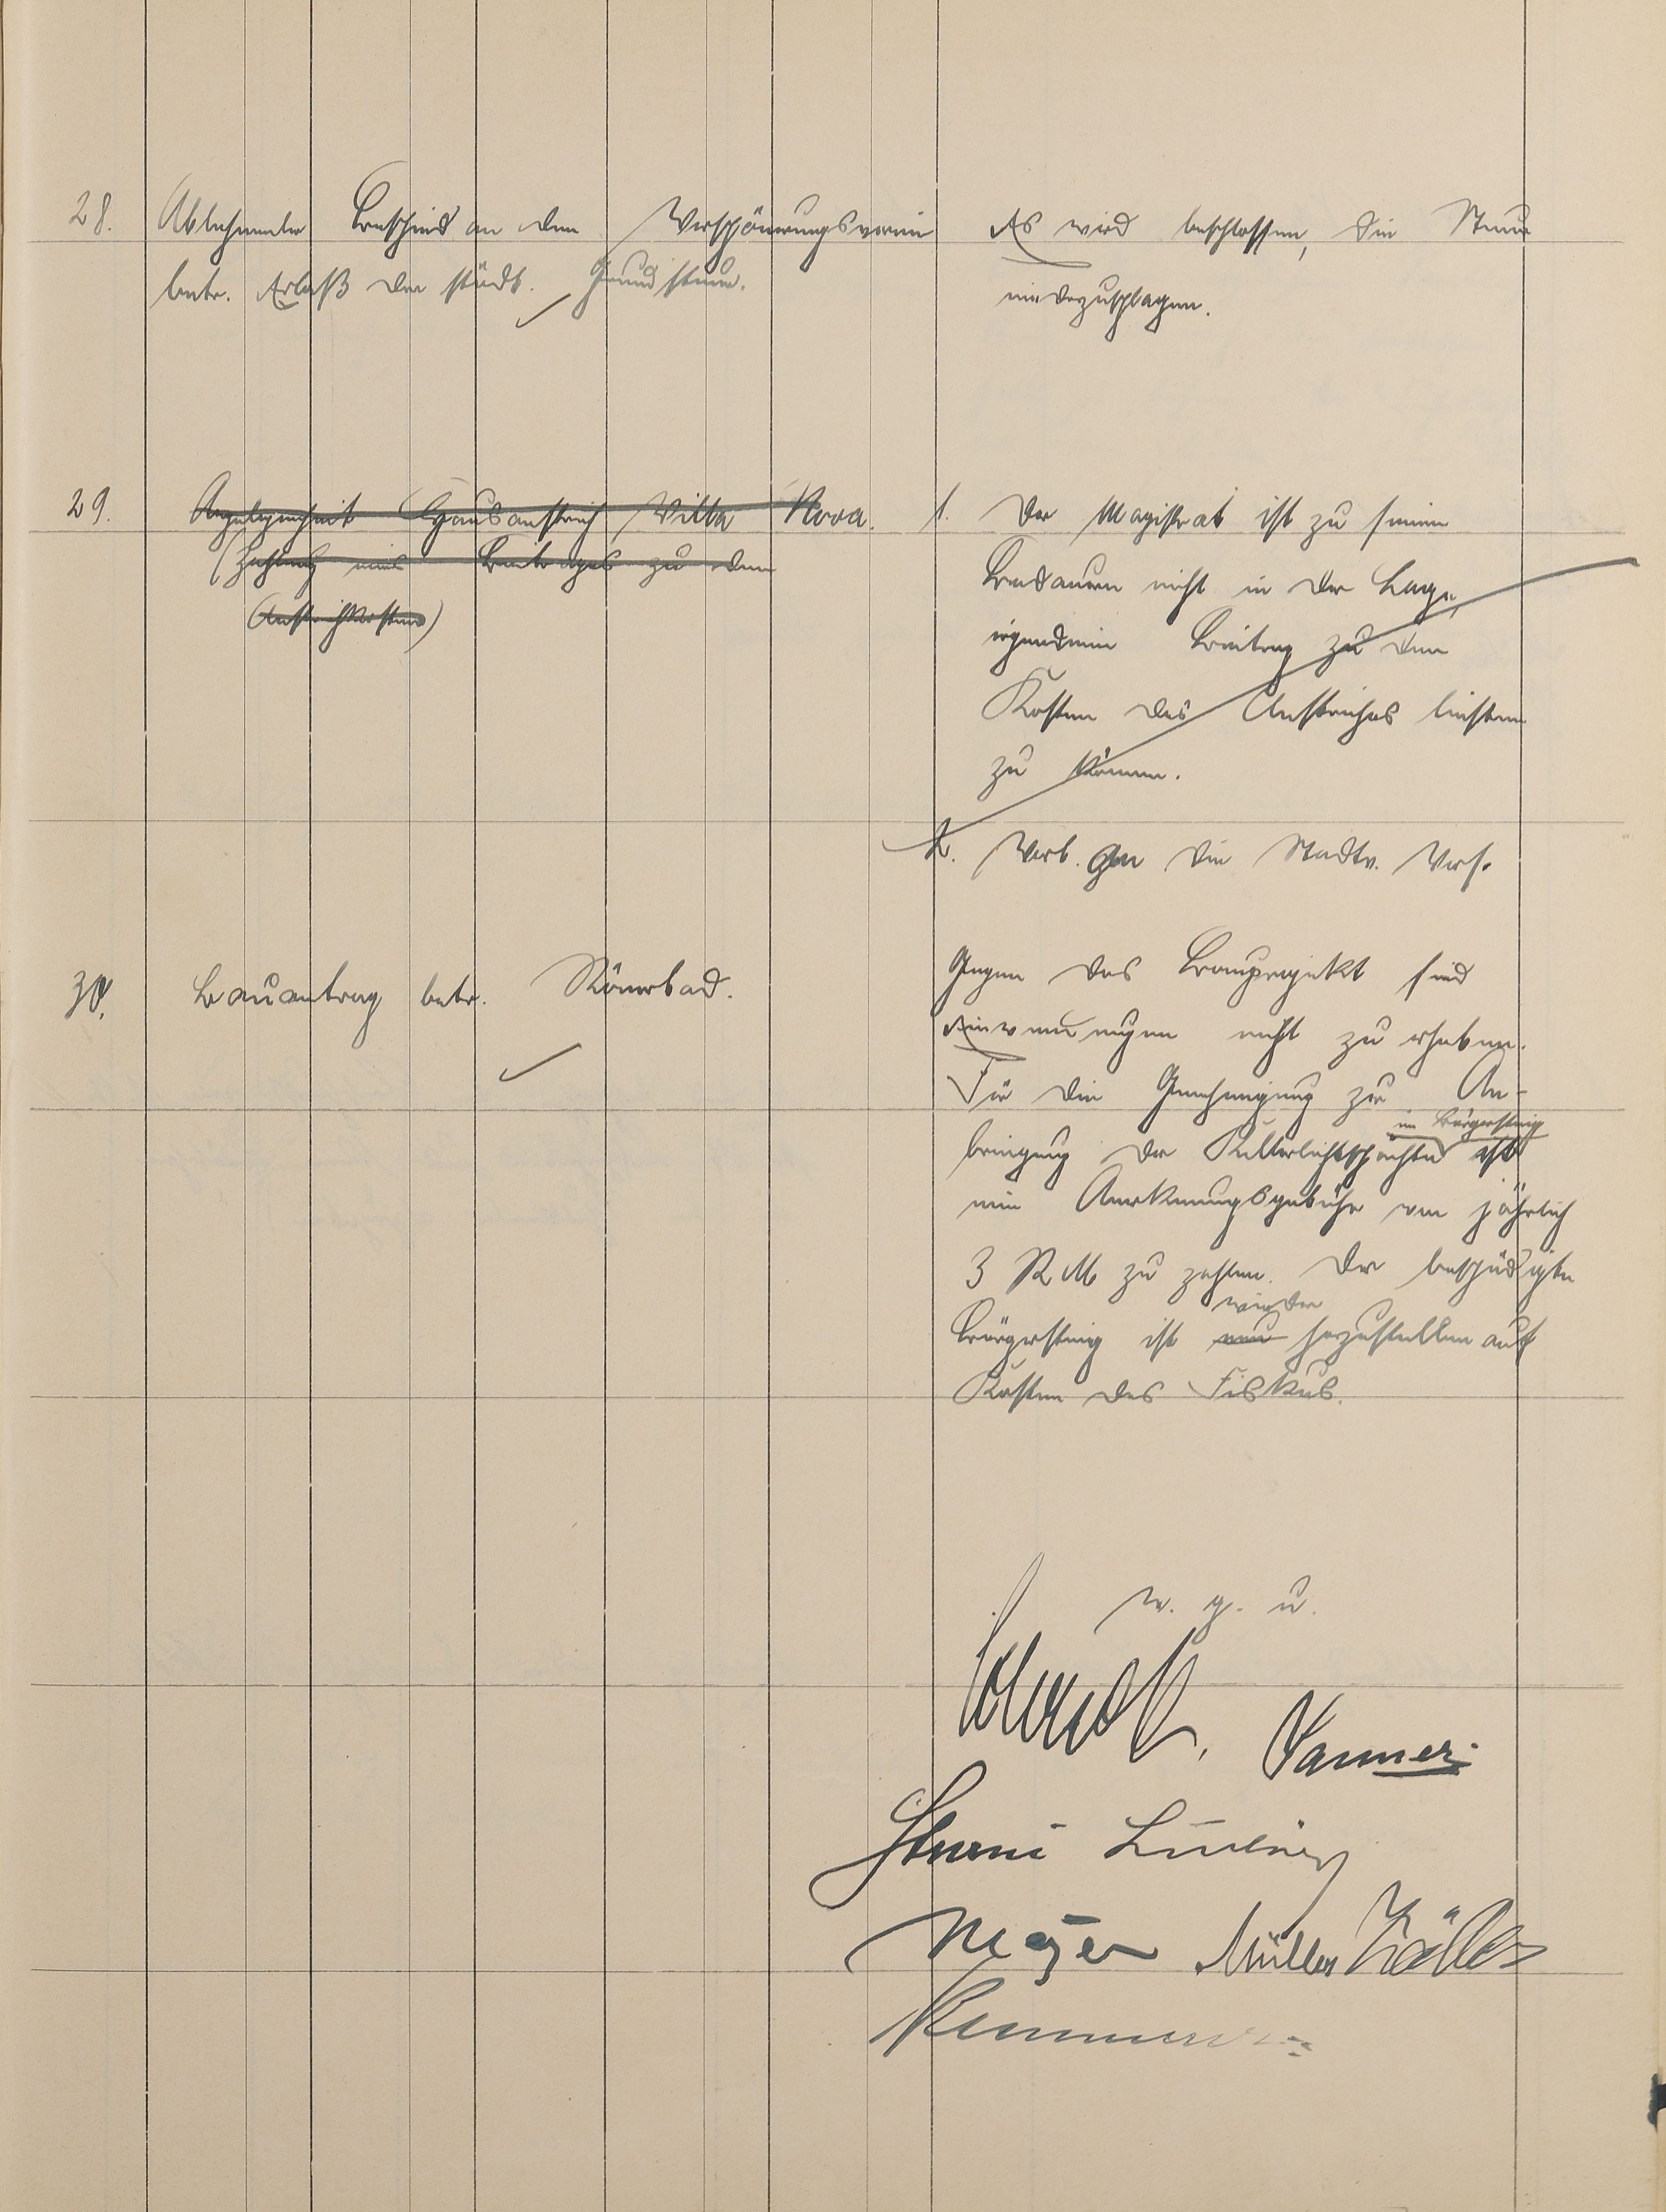 28. Ablehnender Bescheid an den Verschönerungsverein
betr. Erlaß der städt. Grundsteuer.
Es wird beschlossen, die Steuer
niederzuschlagen.
29. Angelegenheit Hausanstrich Villa Nova.
(Zahlung eines Beitrages zu den
Anstrichkosten)
1. Der Magistrat ist zu seinem
Bedauern nicht in der Lage,
irgendeinen Beitrag zu den
Kosten des Anstriches leisten
zu können.
2. Vorl. an die Stadtv. Vers.
30. Bauantrag betr. Römerbad.
Gegen das Bauprojekt sind
Einwendungen nicht zu erheben.
Für die Genehmigung zur An-
bringung der Kellerlichtschächte im Bürgersteig ist
eine Anerkennungsgebühr von jährlich
3 RM zu zahlen. Der beschädigte
Bürgersteig ist neu wieder herzustellen auf
Kosten des Fiskus.
v. g. u.
Sturm Ludwig
Meyer Müller